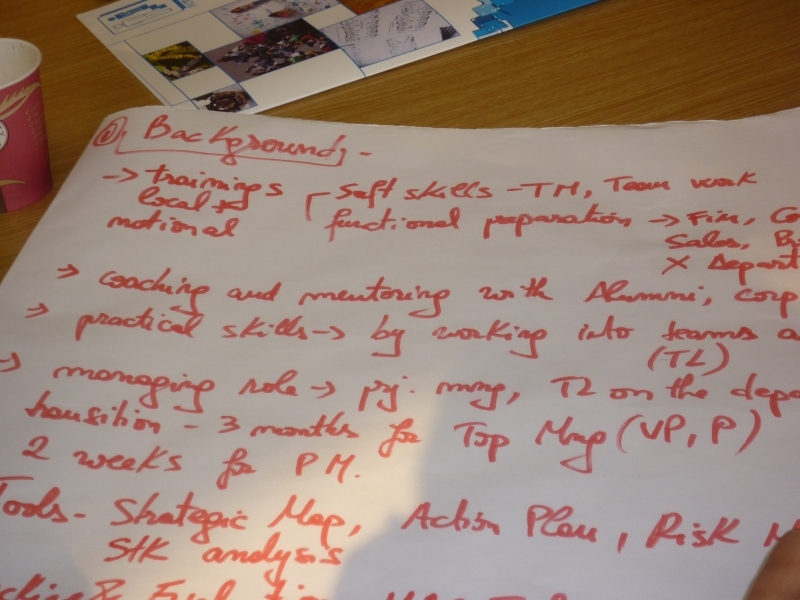 1) Background -
-> trainings
local +
national
soft skills - TM, Team work
functional preparation -> Fin, Co
Sales, B
X Depart
-> coaching and mentoring with Alumni, corp
-> practical skills -> by working into teams a
(TL)
-> managing role -> prj. mng, TL on the depa
transition - 3 months for Top Mng (VP, P)
2 weeks for PM.
Tools - Strategic Map, Action Plan, Risk M
StK analysis